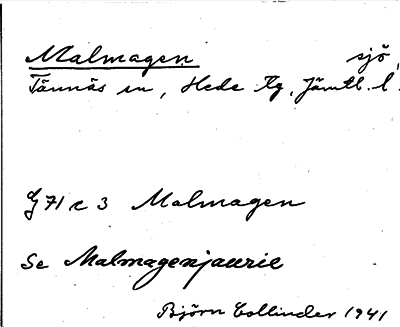 Malmagen sjö,
Tännäs sn, Hede tg, Jämtl. l.
G 71 c 3 Malmagen
Se Malmagenjaurie
Björn Collinder 1941